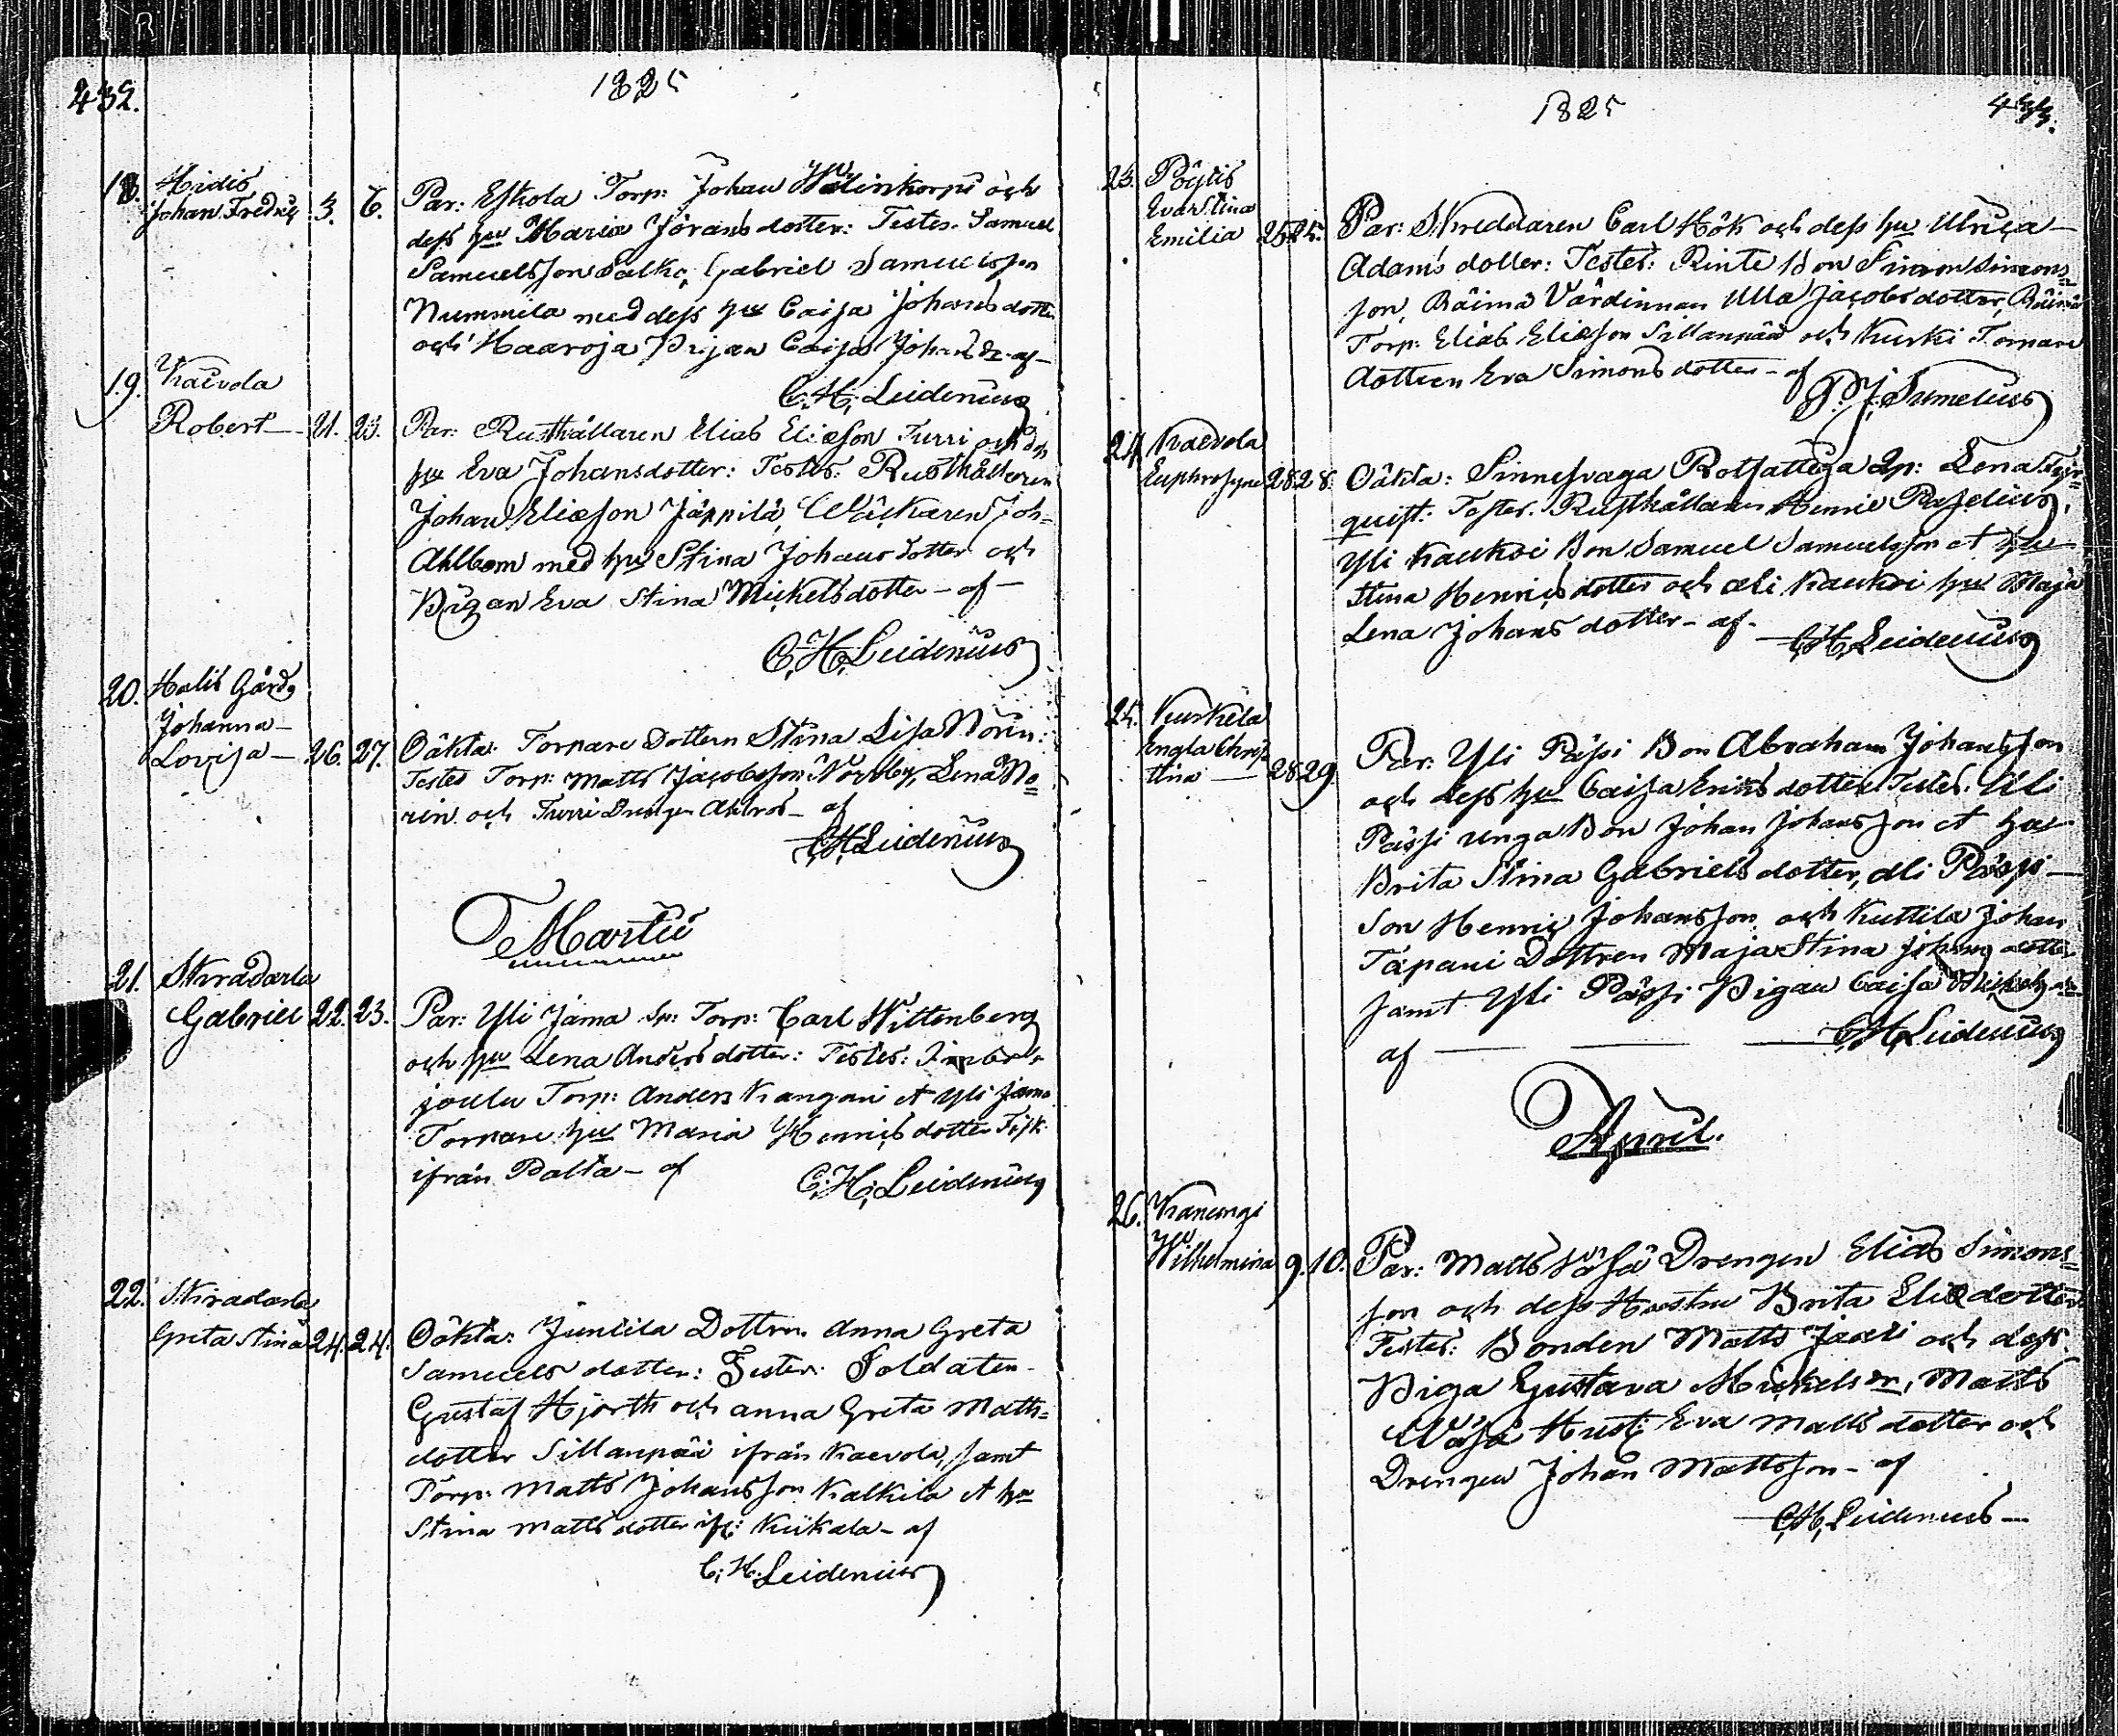 432.
1825
18. Hidis
Johan Fredric 3. 6. Par: Eskola Torp: Johan Wälinkorpi och
dess hu Maria Jörans dotter: Testes. Samuel
Samuelsson Salko, Gabriel Samuelsson
Nummila med dess hu Caisa Johans dotter
och Haaroja Pigan Caisa Johans dr. af
C. H. Leidenius
19. Kaevola
Robert 21. 23. Par: Rusthållaren Elias Eliasson Turri och dess
hu Eva Johansdotter: Testes: Rusthållaren
Johan Eliasson Jäppilä, Joh=
Ahlbom med hu Stina Johans dotter och
Pigan Eva Stina Mickelsdotter - af -
C. H. Leidenius
20. Halis Gård
Johanna
Lovisa 26. 27. Oäkta: Torpare Dottern Stina Lisa Norin:
Testes Torp: Matts Jacobsson Norrby, Lena No=
rin och Turri Drengen Ahlros - af
C. H. Leidenius
Martii
21. Skradarla
Gabriel 22. 23. Par: Yli Jäma Sp: Torp: Carl Wittenberg
och hu Lena Anders dotter: Testes:
joulu Torp: Anders Kangani et Yli Jäma
Torpare hu Maria Henrics dotter Fisk
ifrån Palta - af
C. H. Leidenius
22. Skradarla
Greta Stina 24. 24. Oäkta: Juntila Dottren Anna Greta
Samuels dotter: Testes: Soldaten
Gustaf Hjorth och Anna Greta Matts=
dotter Sillanpää ifrån Kaevola, samt
Torp: Matts Johansson Kalkila et hu
Stina Matts dotter ifr: Kiikala - af
C. H. Leidenius
1825
433.
23. Pöytis
Eva Stina
Emilia 25. 25. Par: Skreddaren Carl Hök och dess hu Ulrica
Adams dotter: Testes: Rinte Bon Simon Simons=
son, Räimä Värdinnan Ulla Jacobs dotter, Räimä
Torp: Elias Eliasson Sillanpää och Kurki Torpare
dottren Eva Simons dotter - af
P. J. Sumelius
24. Kaevola
Euphrosyne 28. 28. Oäkta: Sinnesvaga Rotfattiga Qp: Lena
quist: Testes. Rusthållaren Henric Paselius,
Yli Kaukoi Bon Samuel Samuelsson et hu
Stina Henrics dotter och Ali Kaukoi hu Maja
Lena Johans dotter - af.
C. H. Leidenius
25. Kurkela
Engla Chris
tina 28. 29. Par: Yli Pässi Bon Abraham Johansson
och dess hu Caisa Eriks dotter. Testes. Uli
Pässi unga Bon Johan Johansson et hu
Brita Stina Gabriels dotter, Ali Pässi
Son Henric Johansson och Kuttila Johan
Tapani Dottren Maja Stina Johans dotter
samt Yli Pässi Pigan Caisa
af
C. H. Leidenius
April.
26. Kanungi
Wilhelmina 9. 10. Par: Matts Väsä Drengen Elias Simons=
son och dess Hustru Brita Elias dotter
Testes: Bonden Matts Jaari och dess
Piga Gustava Mickels dr, Matts
Wäsä Hust: Eva Matts dotter och
Drengen Johan Mattsson - af
C. H. Leidenius